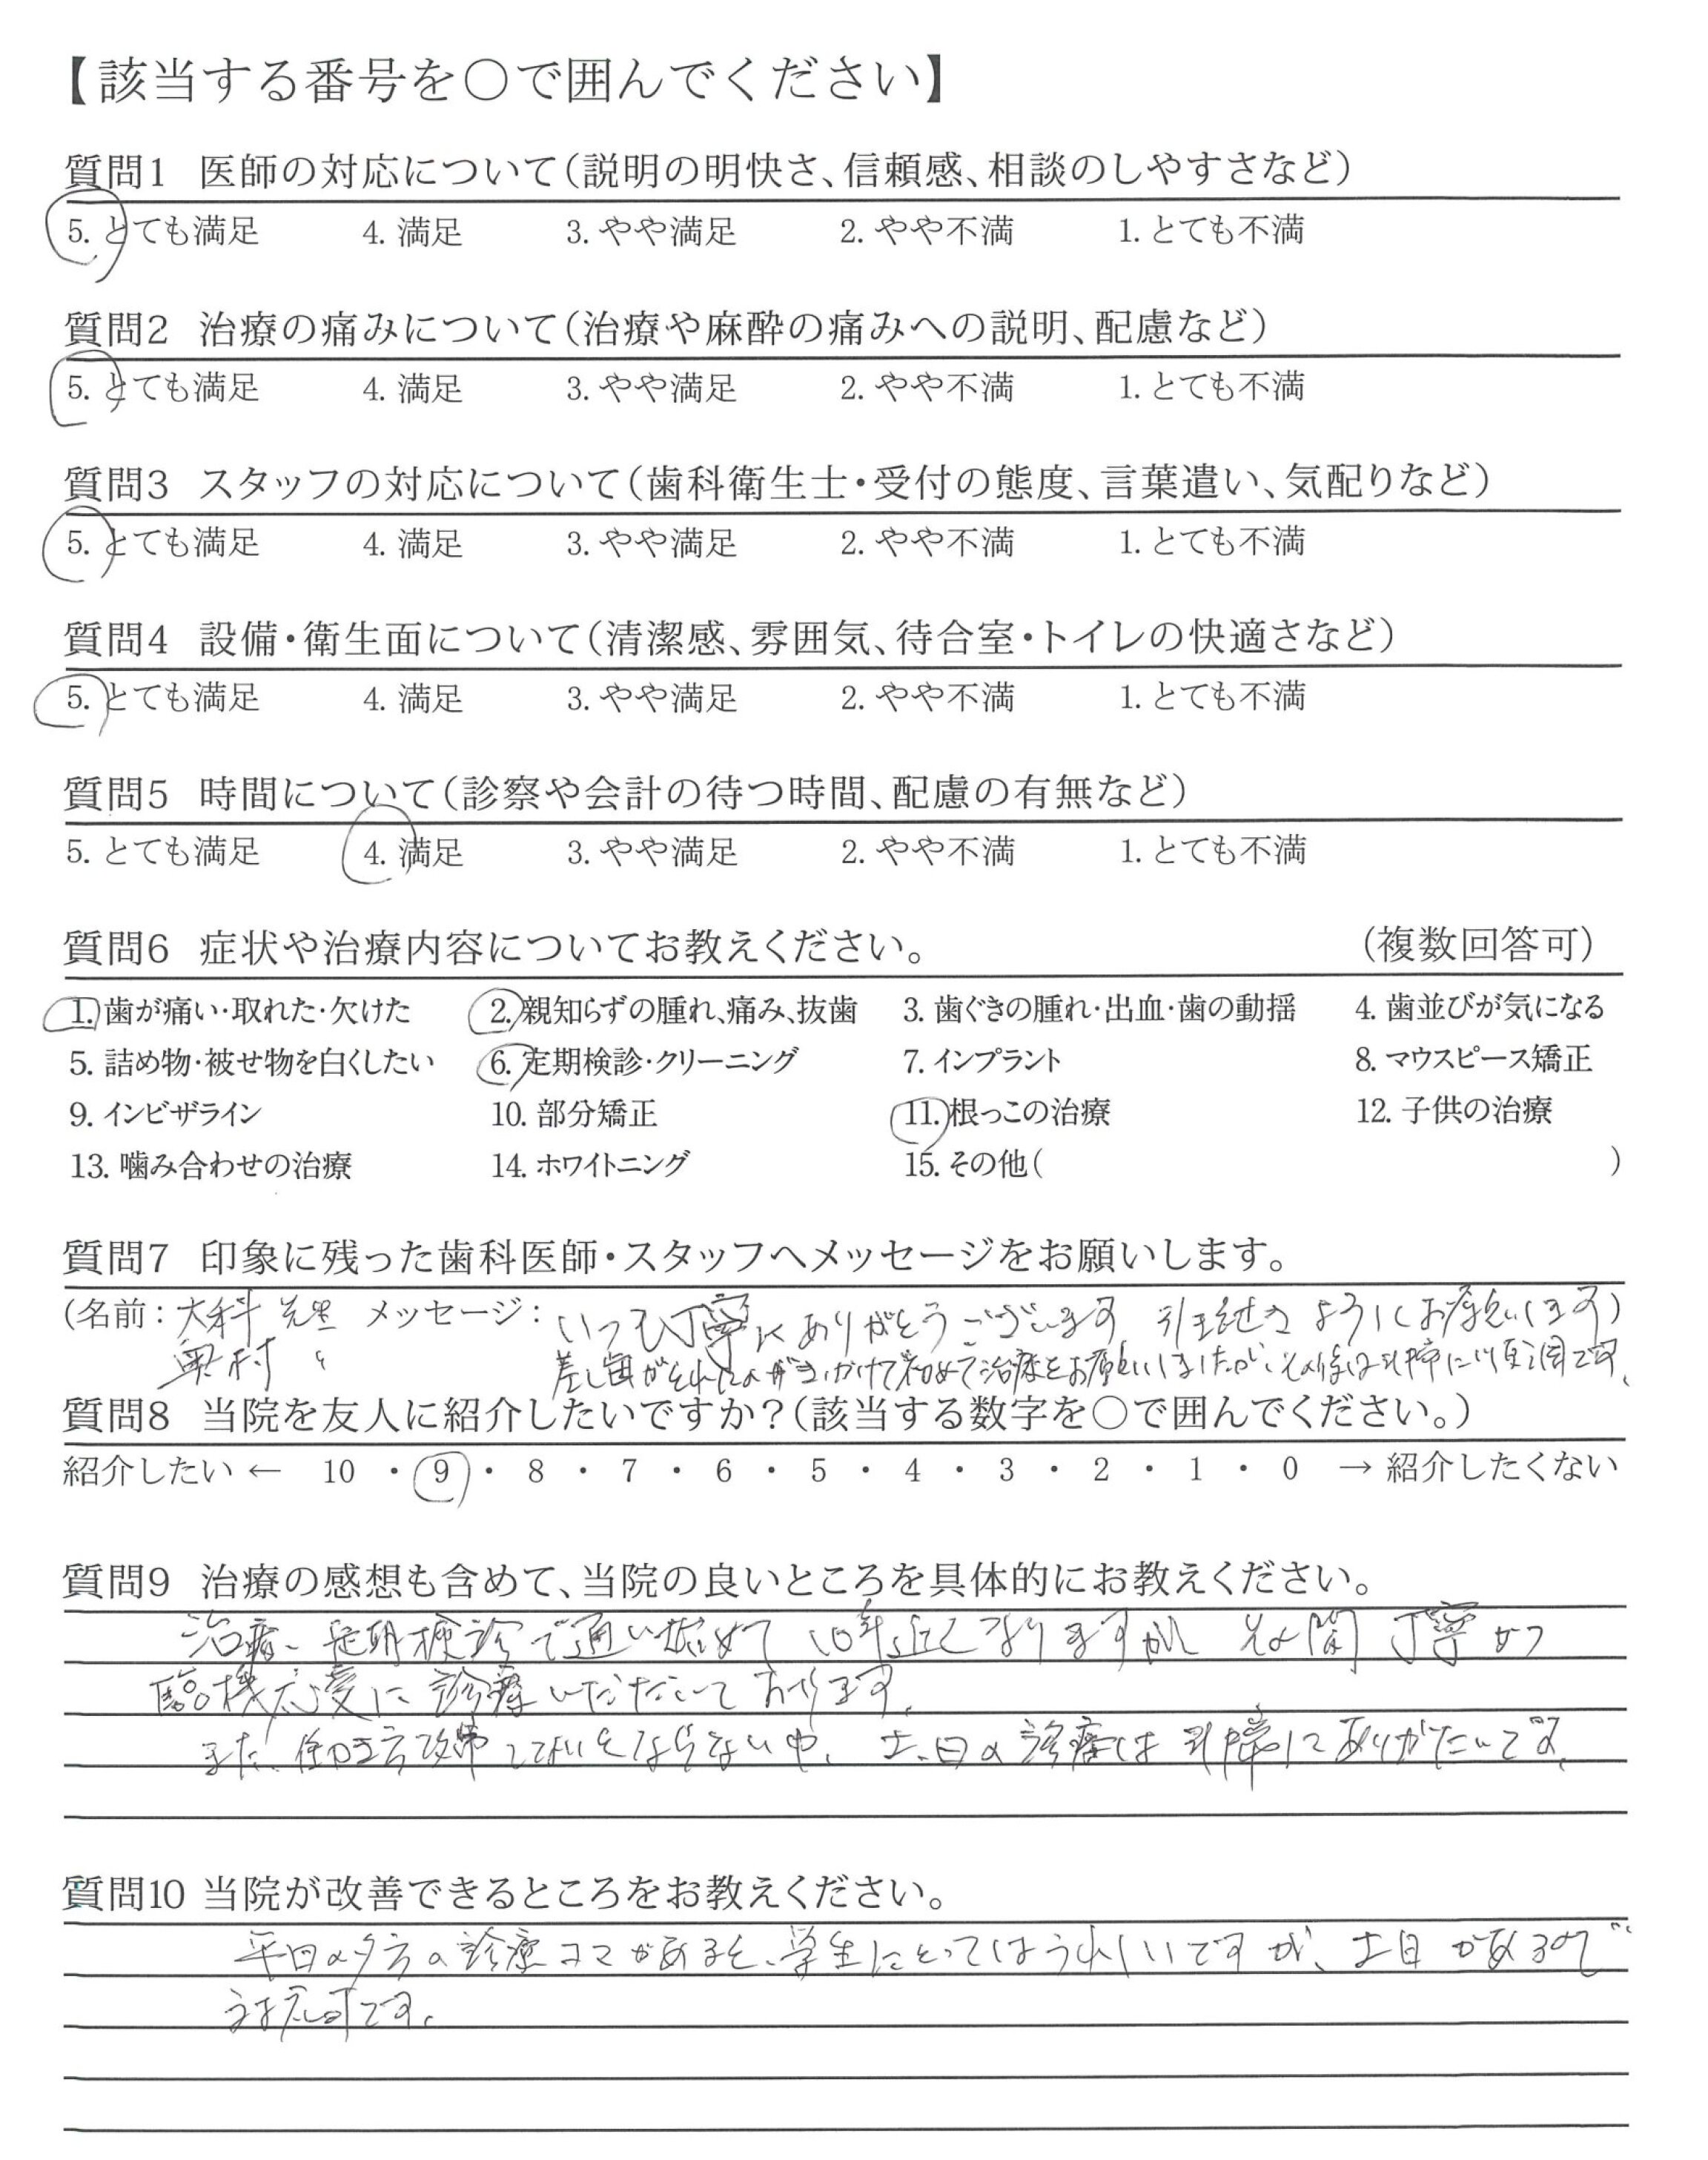 【該当する番号を○で囲んでください】
質問1 医師の対応について（説明の明快さ、信頼感、相談のしやすさなど）
5. とても満足 4. 満足 3. やや満足 2. やや不満 1. とても不満
質問2 治療の痛みについて（治療や麻酔の痛みへの説明、配慮など）
5. とても満足 4. 満足 3. やや満足 2. やや不満 1. とても不満
質問3 スタッフの対応について（歯科衛生士・受付の態度、言葉遣い、気配りなど）
5. とても満足 4. 満足 3. やや満足 2. やや不満 1. とても不満
質問4 設備・衛生面について（清潔感、雰囲気、待合室・トイレの快適さなど）
5. とても満足 4. 満足 3. やや満足 2. やや不満 1. とても不満
質問5 時間について（診察や会計の待つ時間、配慮の有無など）
5. とても満足 4. 満足 3. やや満足 2. やや不満 1. とても不満
質問6 症状や治療内容についてお教えください。 （複数回答可）
1. 歯が痛い・取れた・欠けた 2. 親知らずの腫れ、痛み、抜歯 3. 歯ぐきの腫れ・出血・歯の動揺 4. 歯並びが気になる
5. 詰め物・被せ物を白くしたい 6. 定期検診・クリーニング 7. インプラント 8. マウスピース矯正
9. インビザライン 10. 部分矯正 11. 根っこの治療 12. 子供の治療
13. 噛み合わせの治療 14. ホワイトニング 15. その他（ ）
質問7 印象に残った歯科医師・スタッフへメッセージをお願いします。
（名前：大科 先生 メッセージ：いつも丁寧にありがとうございます 引き続き よろしくお願いします）
奥村 〃 差し歯がとれたのがきっかけで初めて治療をお願いしましたが、その後は非常に順調です。
質問8 当院を友人に紹介したいですか？（該当する数字を○で囲んでください。）
紹介したい ← 10 ・ 9 ・ 8 ・ 7 ・ 6 ・ 5 ・ 4 ・ 3 ・ 2 ・ 1 ・ 0 → 紹介したくない
質問9 治療の感想も含めて、当院の良いところを具体的にお教えください。
治療、定期検診で通い始めて10年近くなりますが その間 丁寧かつ
臨機応変に診療いただいております。
また、働き方改革 ならない中、土、日の診療は非常にありがたいです。
質問10 当院が改善できるところをお教えください。
平日の夕方の診療コマがあると、学生にとってはうれしいですが、土日があるので
対応可です。